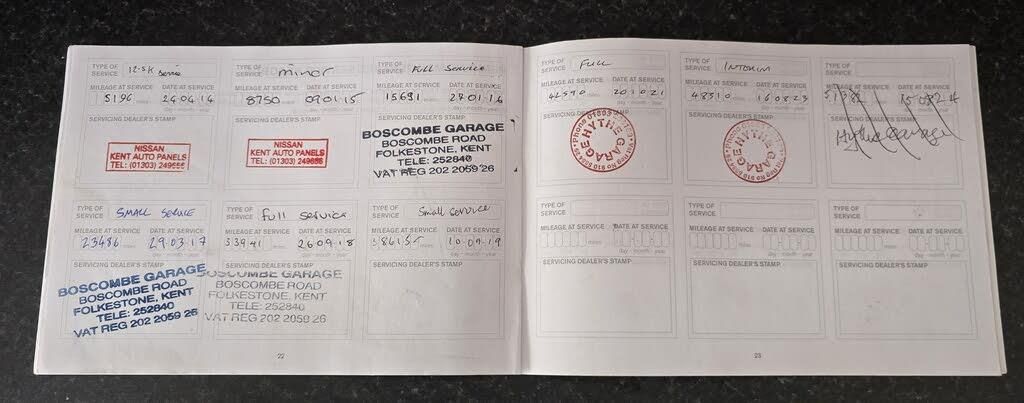 TYPE OF SERVICE 12.5K Service
MILEAGE AT SERVICE DATE AT SERVICE
5196 miles 24.04.14
day - month - year
SERVICING DEALER'S STAMP
NISSAN
KENT AUTO PANELS
TEL: (01303) 249656
TYPE OF SERVICE minor
MILEAGE AT SERVICE DATE AT SERVICE
8750 miles 09.01.15
day - month - year
SERVICING DEALER'S STAMP
NISSAN
KENT AUTO PANELS
TEL: (01303) 249656
TYPE OF SERVICE FULL SERVICE
MILEAGE AT SERVICE DATE AT SERVICE
15691 27.01.16
BOSCOMBE GARAGE
BOSCOMBE ROAD
FOLKESTONE, KENT
TELE: 252840
VAT REG 202 2059 26
TYPE OF SERVICE FULL
MILEAGE AT SERVICE DATE AT SERVICE
42590 miles 20.10.21
day - month - year
SERVICING DEALER'S STAMP
HYTHE GARAGE
TYPE OF SERVICE INTERIM
MILEAGE AT SERVICE DATE AT SERVICE
48510 miles 16.08.23
day - month - year
SERVICING DEALER'S STAMP
HYTHE GARAGE
TYPE OF SERVICE
MILEAGE AT SERVICE DATE AT SERVICE
SERVICING DEALER'S STAMP
Hythe Garage
TYPE OF SERVICE SMALL SERVICE
MILEAGE AT SERVICE DATE AT SERVICE
23486 miles 29.03.17
day - month - year
BOSCOMBE GARAGE
BOSCOMBE ROAD
FOLKESTONE, KENT
TELE: 252840
VAT REG 202 2059 26
TYPE OF SERVICE Full service
MILEAGE AT SERVICE DATE AT SERVICE
33941 miles 26.09.18
day - month - year
SERVICING DEALER'S STAMP
BOSCOMBE GARAGE
BOSCOMBE ROAD
FOLKESTONE, KENT
TELE: 252840
VAT REG 202 2059 26
TYPE OF SERVICE Small service
MILEAGE AT SERVICE DATE AT SERVICE
38615 miles 10.09.19
day - month - year
SERVICING DEALER'S STAMP
TYPE OF SERVICE
MILEAGE AT SERVICE DATE AT SERVICE
miles
day - month - year
SERVICING DEALER'S STAMP
TYPE OF SERVICE
MILEAGE AT SERVICE DATE AT SERVICE
miles
day - month - year
SERVICING DEALER'S STAMP
TYPE OF SERVICE
MILEAGE AT SERVICE DATE AT SERVICE
miles
day - month - year
SERVICING DEALER'S STAMP
22
23